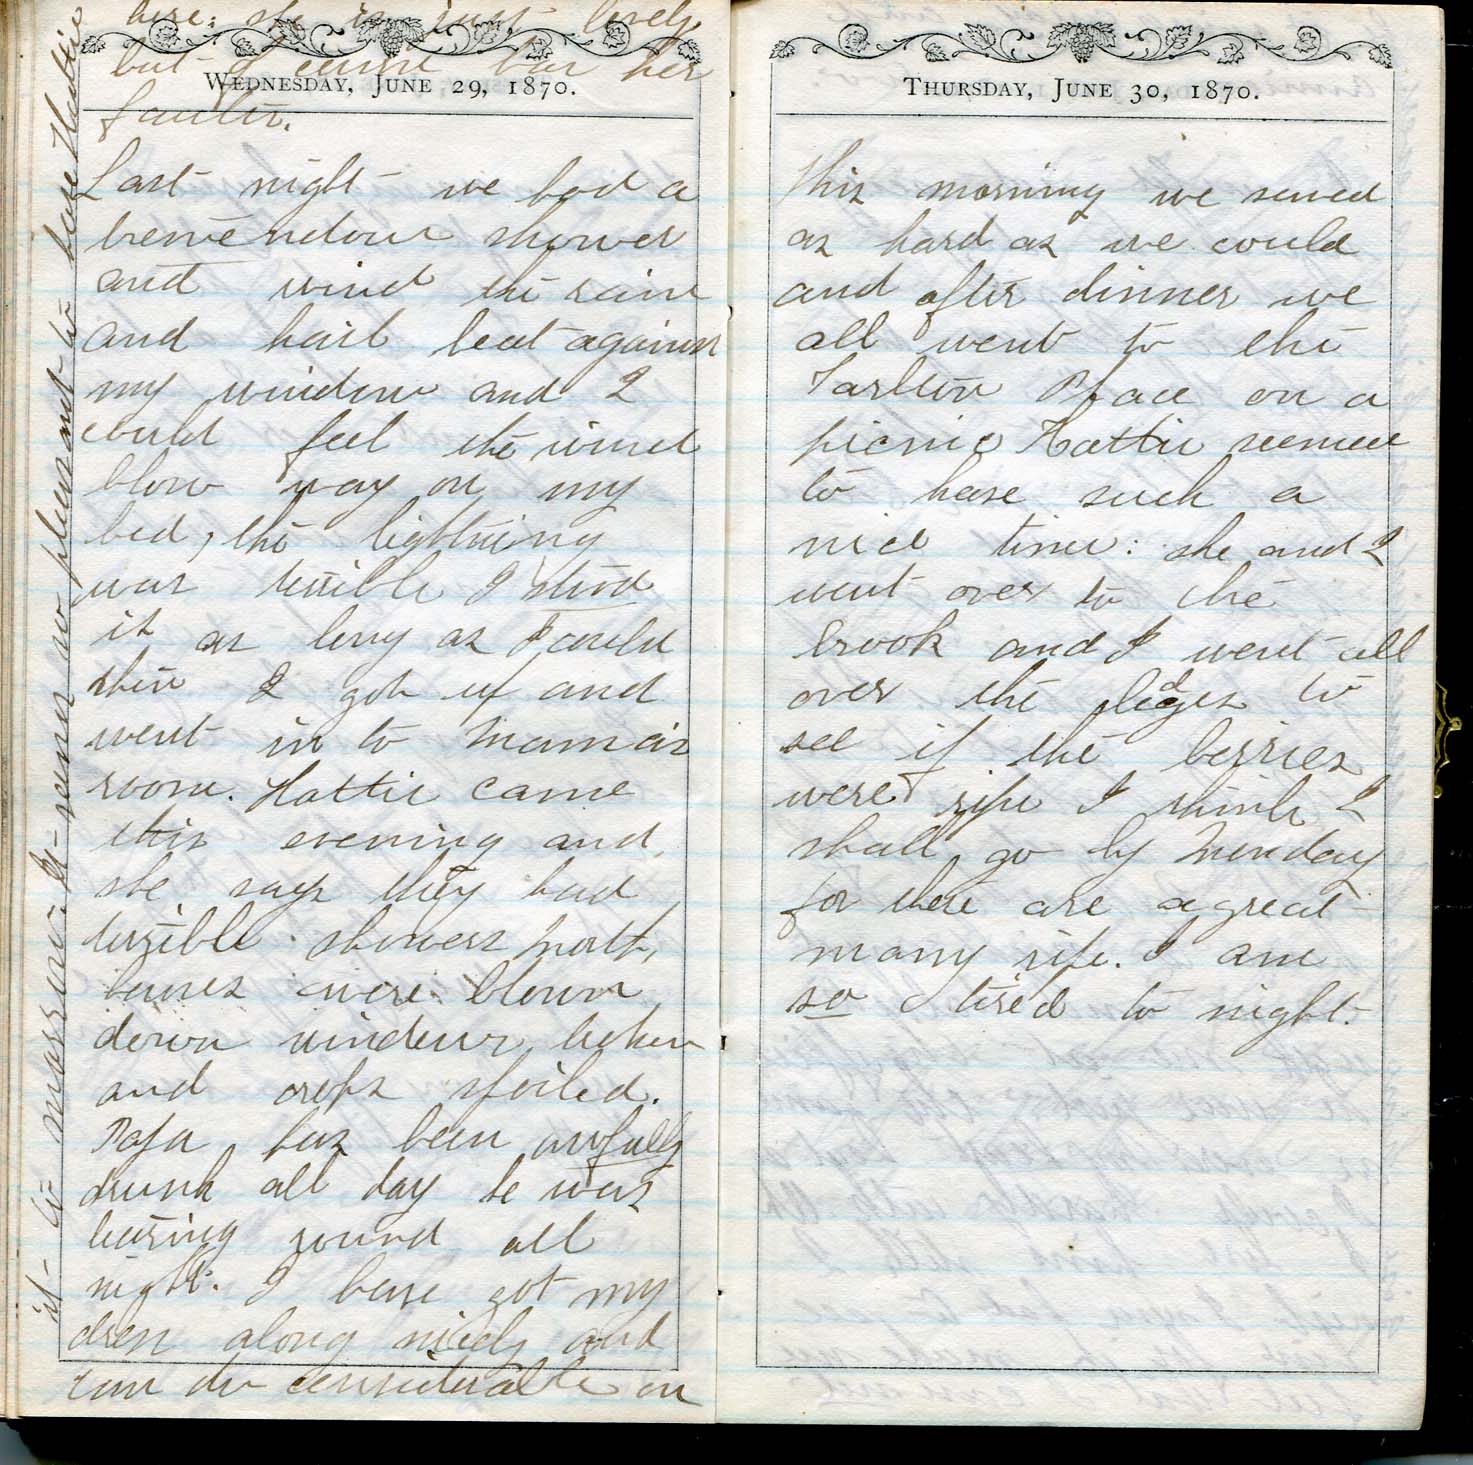 WEDNESDAY, JUNE 29, 1870.
Last night we had a
tremendous shower
and wind the rain
and hail beat against
my window and I
could feel the wind
blow way on my
bed, the lightning
was terrible I stood
it as long as I could
then I got up and
went in to Mama's
room. Hattie came
this evening and
she says they had
terrible showers North,
houses were blown
down windows broken
and crops spoiled.
Papa has been awfully
drunk all day he was
tearing round all
night. I have got my
dress along nicely and
can do considerable on
it to morrow. It seems so pleasant to have Hattie
here: she is just lovely
but I cannot her
faults.
THURSDAY, JUNE 30, 1870.
This morning we sewed
as hard as we could
and after dinner we
all went to the
Tarlton Place on a
picnic Hattie seemed
to have such a
nice time: she and I
went over to the
brook and I went all
over the ledges to
see if the berries
were ripe I think I
shall go by Monday
for there are a great
many ripe. I am
so tired to night.